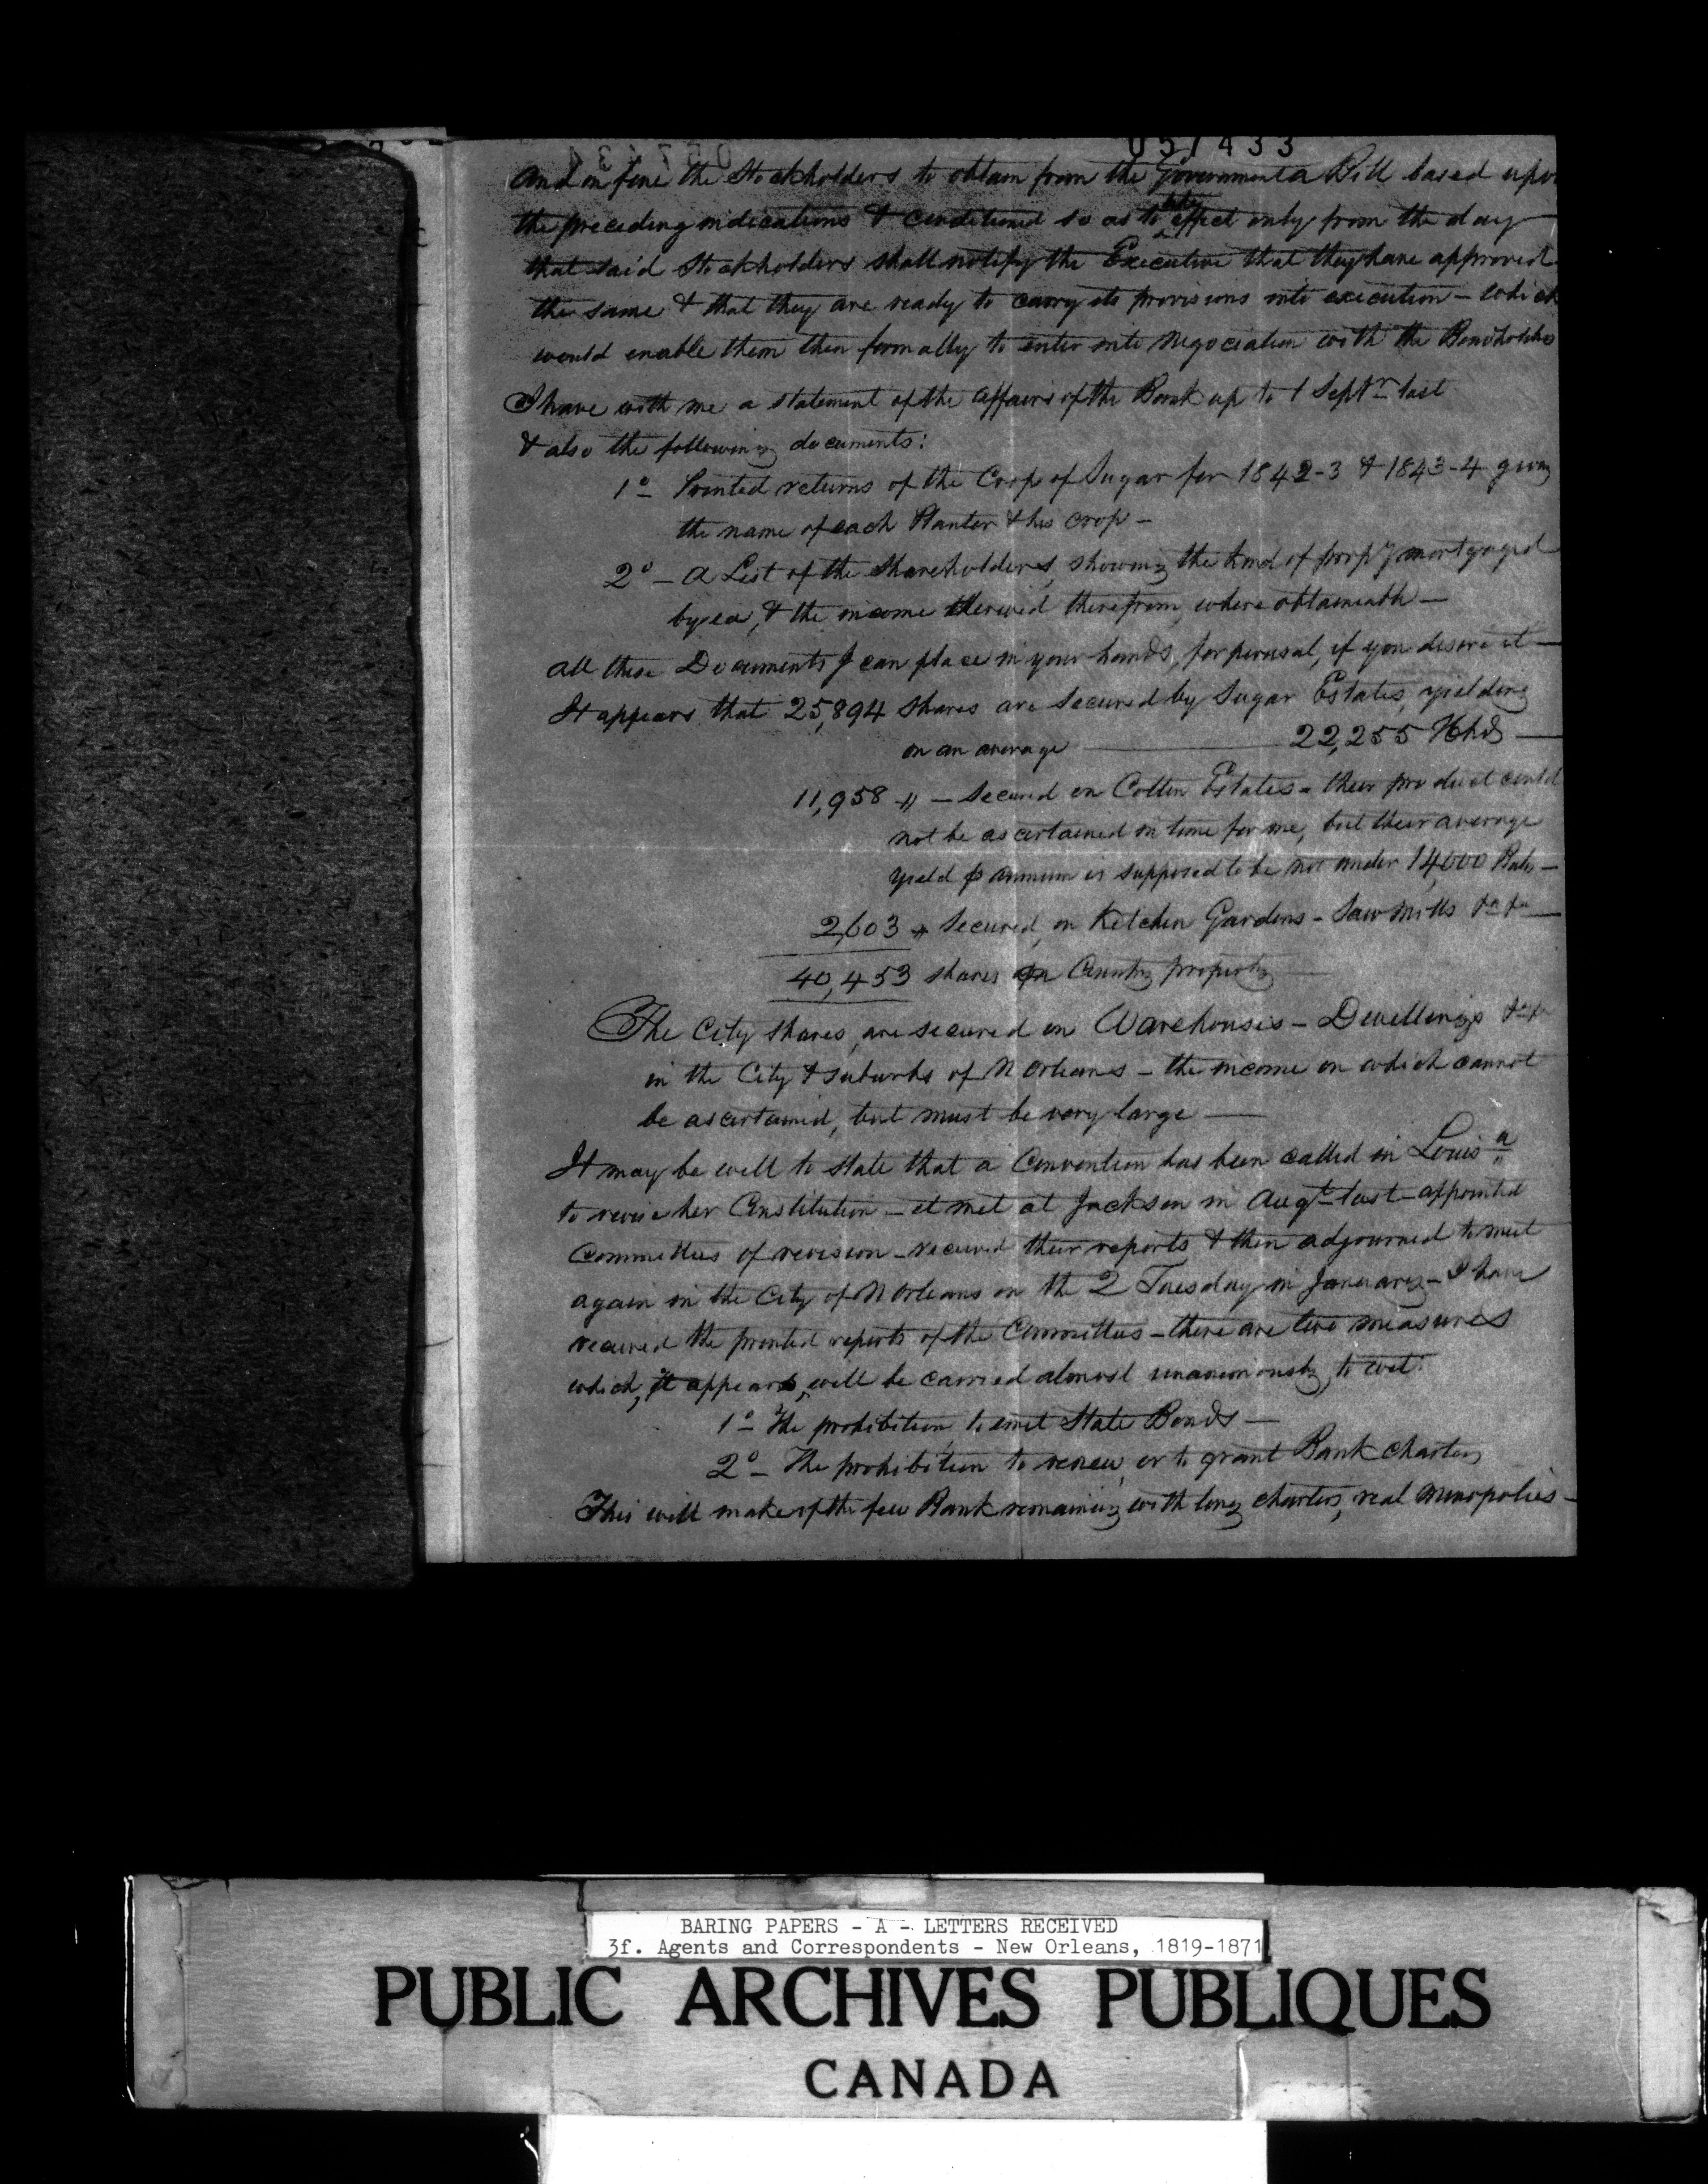 057433
And in fine the Stockholders to obtain from the Government a Bill based upon
the preceding indications & conditioned so as to take effect only from the day
that said Stockholders shall notify the Executive that they have approved
the same & that they are ready to carry its provisions into execution – which
would enable them then formally to enter into Negociation with the Bondholders
I have with me a statement of the affairs of the Bank up to 1 Septr last
& also the following documents:
1º – Printed returns of the Crop of Sugar for 1842-3 & 1843-4 giving
the name of each Planter & his crop –
2º – A List of the Shareholders, showing the kind of propy mortgaged
by ea, & the income derived therefrom, where obtaineable –
All these Documents I can place in your hands, for perusal, if you desire it –
It appears that 25,894 shares are secured by Sugar Estates, yielding
on an average 22,255 Hhds –
11,958 " – secured on Cotton Estates – their product could
not be ascertained in time for me, but their average
yield p annum is supposed to be not under 14,000 Bales –
2,603 " secured, on Kitchen Gardens – Saw Mills &a &a
40,453 shares on Country property
The City shares, are secured on Warehouses – Dwellings &a &a
in the City & suburbs of N Orleans – the income on which cannot
be ascertained, but must be very large –
It may be well to state that a Convention has been called in Louisa
to revise her Constitution – it met at Jackson in Augt last – appointed
Committees of revision – received their reports & then adjourned to meet
again in the City of N Orleans on the 2 Tuesday in January – I have
received the printed reports of the Committees – there are two measures
which, it appears, will be carried almost unanimously, to wit:
1º – The prohibition, to emit State Bonds –
2º – The prohibition to renew, or to grant Bank charters
This will make of the few Bank remaining with long charters, real monopolies –
BARING PAPERS - A - LETTERS RECEIVED
3f. Agents and Correspondents - New Orleans, 1819-1871
PUBLIC ARCHIVES PUBLIQUES
CANADA